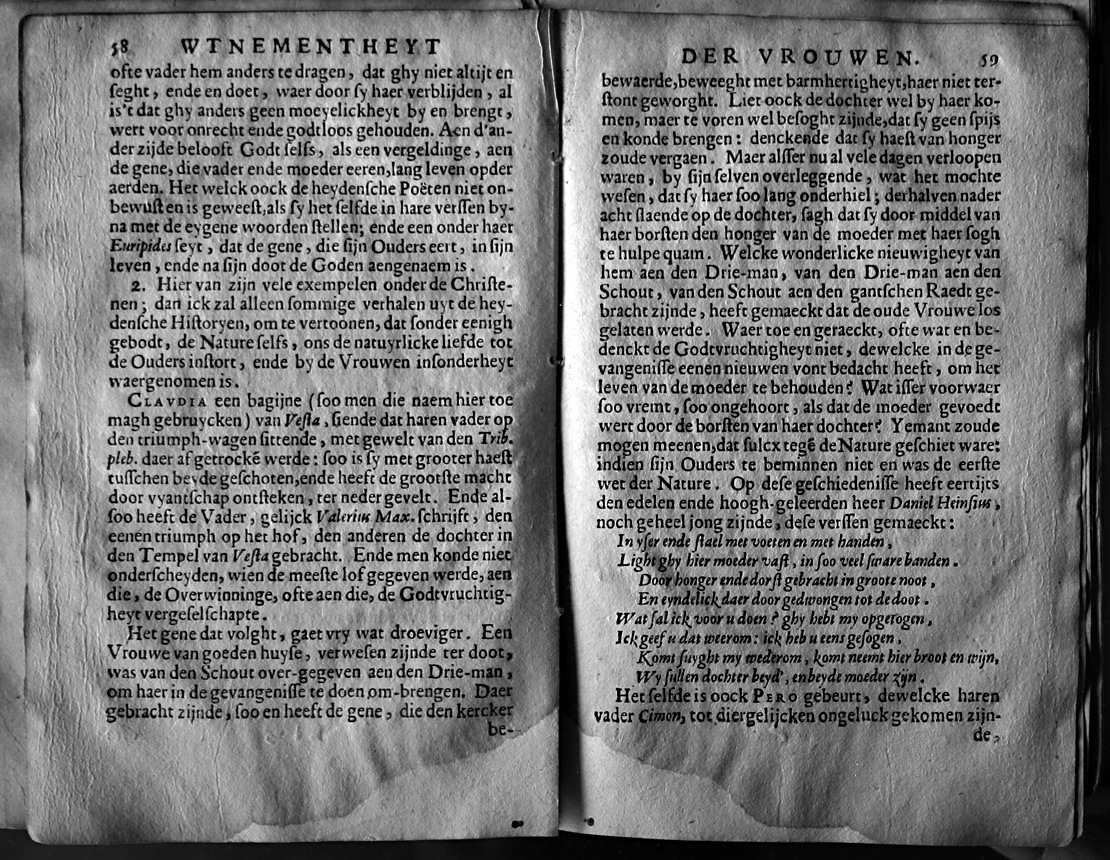 58 WTNEMENTHEYT
ofte vader hem anders te dragen, dat ghy niet altijt en
ſeght, ende en doet, waer door ſy haer verblijden, al
is't dat ghy anders geen moeyelickheyt by en brengt,
wert voor onrecht ende godtloos gehouden. Aen d'an-
der zijde belooft Godt ſelfs, als een vergeldinge, aen
de gene, die vader ende moeder eeren, lang leven op der
aerden. Het welck oock de heydenſche Poëten niet on-
bewuſt en is geweeſt, als ſy het ſelfde in hare verſſen by-
na met de eygene woorden ſtellen; ende een onder haer
Euripides ſeyt, dat de gene, die ſijn Ouders eert, in ſijn
leven, ende na ſijn doot de Goden aengenaem is.
2. Hier van zijn vele exempelen onder de Chriſte-
nen; dan ick zal alleen ſommige verhalen uyt de hey-
denſche Hiſtoryen, om te vertoonen, dat ſonder eenigh
gebodt, de Nature ſelfs, ons de natuyrlicke liefde tot
de Ouders inſtort, ende by de Vrouwen inſonderheyt
waergenomen is.
CLAVDIA een bagijne (ſoo men die naem hier toe
magh gebruycken) van Veſta, ſiende dat haren vader op
den triumph-wagen ſittende, met gewelt van den Trib.
pleb. daer af getrockē werde: ſoo is ſy met grooter haeſt
tuſſchen beyde geſchoten, ende heeft de grootſte macht
door vyantſchap ontſteken, ter neder gevelt. Ende al-
ſoo heeft de Vader, gelijck Valerius Max. ſchrijft, den
eenen triumph op het hof, den anderen de dochter in
den Tempel van Veſta gebracht. Ende men konde niet
onderſcheyden, wien de meeſte lof gegeven werde, aen
die, de Overwinninge, ofte aen die, de Godtvruchtig-
heyt vergeſelſchapte.
Het gene dat volght, gaet vry wat droeviger. Een
Vrouwe van goeden huyſe, verweſen zijnde ter doot,
was van den Schout over-gegeven aen den Drie-man,
om haer in de gevangeniſſe te doen om-brengen. Daer
gebracht zijnde, ſoo en heeft de gene, die den kercker
be-
DER VROUWEN. 59
bewaerde, beweeght met barmhertigheyt, haer niet ter-
ſtont geworght. Liet oock de dochter wel by haer ko-
men, maer te voren wel beſoght zijnde, dat ſy geen ſpijs
en konde brengen: denckende dat ſy haeſt van honger
zoude vergaen. Maer alſſer nu al vele dagen verloopen
waren, by ſijn ſelven overleggende, wat het mochte
weſen, dat ſy haer ſoo lang onderhiel; derhalven nader
acht ſlaende op de dochter, ſagh dat ſy door middel van
haer borſten den honger van de moeder met haer ſogh
te hulpe quam. Welcke wonderlicke nieuwigheyt van
hem aen den Drie-man, van den Drie-man aen den
Schout, van den Schout aen den gantſchen Raedt ge-
bracht zijnde, heeft gemaeckt dat de oude Vrouwe los
gelaten werde. Waer toe en geraeckt, ofte wat en be-
denckt de Godtvruchtigheyt niet, dewelcke in de ge-
vangeniſſe eenen nieuwen vont bedacht heeft, om het
leven van de moeder te behouden? Wat iſſer voorwaer
ſoo vremt, ſoo ongehoort, als dat de moeder gevoedt
wert door de borſten van haer dochter? Yemant zoude
mogen meenen, dat ſulcx tegē de Nature geſchiet ware:
indien ſijn Ouders te beminnen niet en was de eerſte
wet der Nature. Op deſe geſchiedeniſſe heeft eertijts
den edelen ende hoogh-geleerden heer Daniel Heinſius,
noch geheel jong zijnde, deſe verſſen gemaeckt:
In yſer ende ſtael met voeten en met handen,
Light ghy hier moeder vaſt, in ſoo veel ſware banden.
Door honger ende dorſt gebracht in groote noot,
En eyndelick daer door gedwongen tot de doot.
Wat ſal ick voor u doen? ghy hebt my opgetogen,
Ick geef u dat weerom: ick heb u eens geſogen,
Komt ſuyght my wederom, komt neemt hier broot en wijn,
Wy ſullen dochter beyd', en beyde moeder zijn.
Het ſelfde is oock PERO gebeurt, dewelcke haren
vader Cimon, tot diergelijcken ongeluck gekomen zijn-
de,